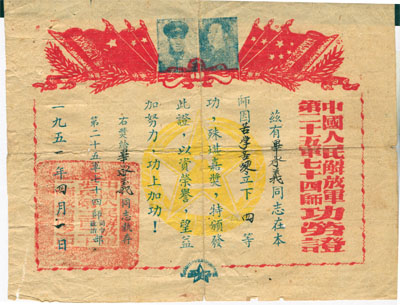 中國人民解放軍
第二十五軍七十四師功勞證
茲有畢永義同志在本
師因
立下四等
功，殊堪嘉獎，特頒發
此證，以資榮譽，望益
加努力，功上加功！
右獎給畢永義同志執存
第二十五軍七十四師
一九五一年四月一日